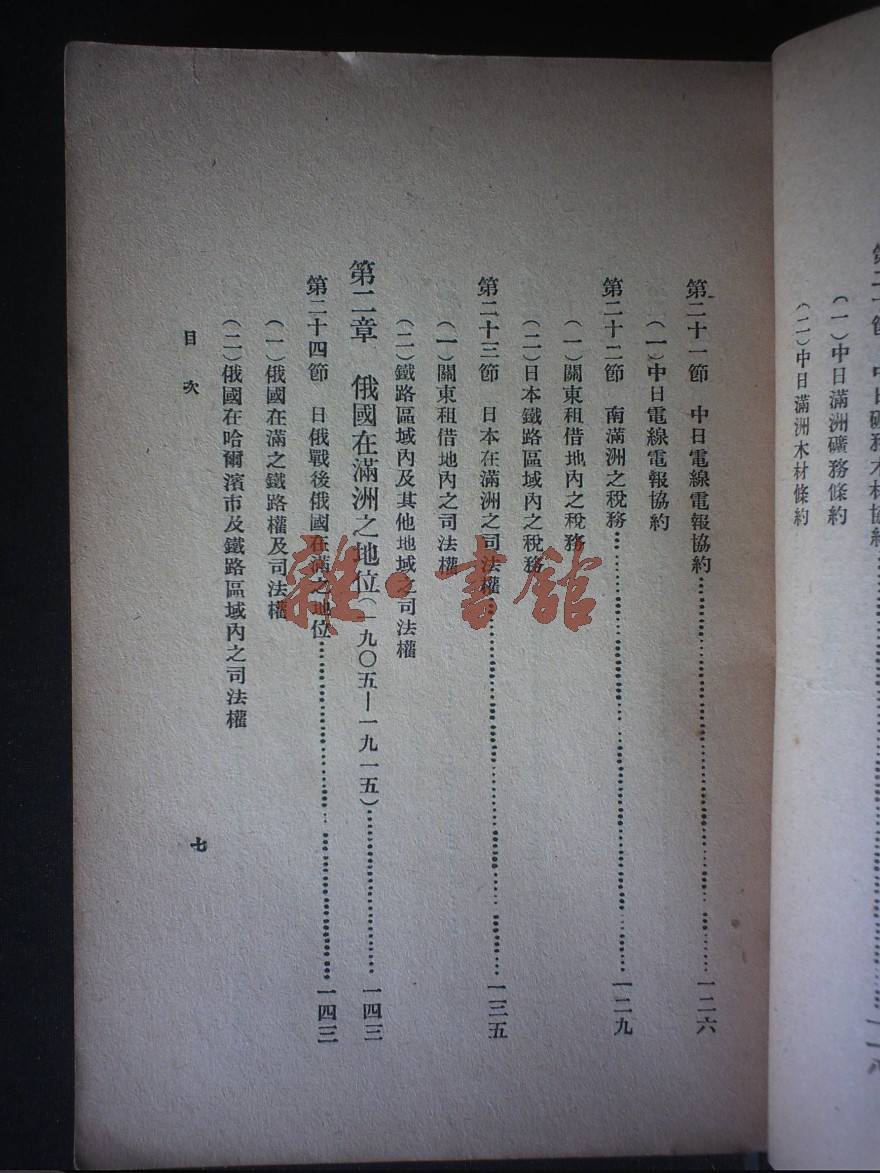 第二十一節　中日電線電報協約……一二六
(一)中日電線電報協約
第二十二節　南滿洲之稅務……一二九
(一)關東租借地內之稅務
(二)日本鐵路區域內之稅務
第二十三節　日本在滿洲之司法權……一三五
(一)關東租借地內之司法權
(二)鐵路區域內及其他地域之司法權
第二章　俄國在滿洲之地位(一九〇五—一九一五)……一四三
第二十四節　日俄戰後俄國在滿之地位……一四三
(一)俄國在滿之鐵路權及司法權
(二)俄國在哈爾濱市及鐵路區域內之司法權
目次
七
(一)中日滿洲礦務條約
(二)中日滿洲木材條約
雜·書館